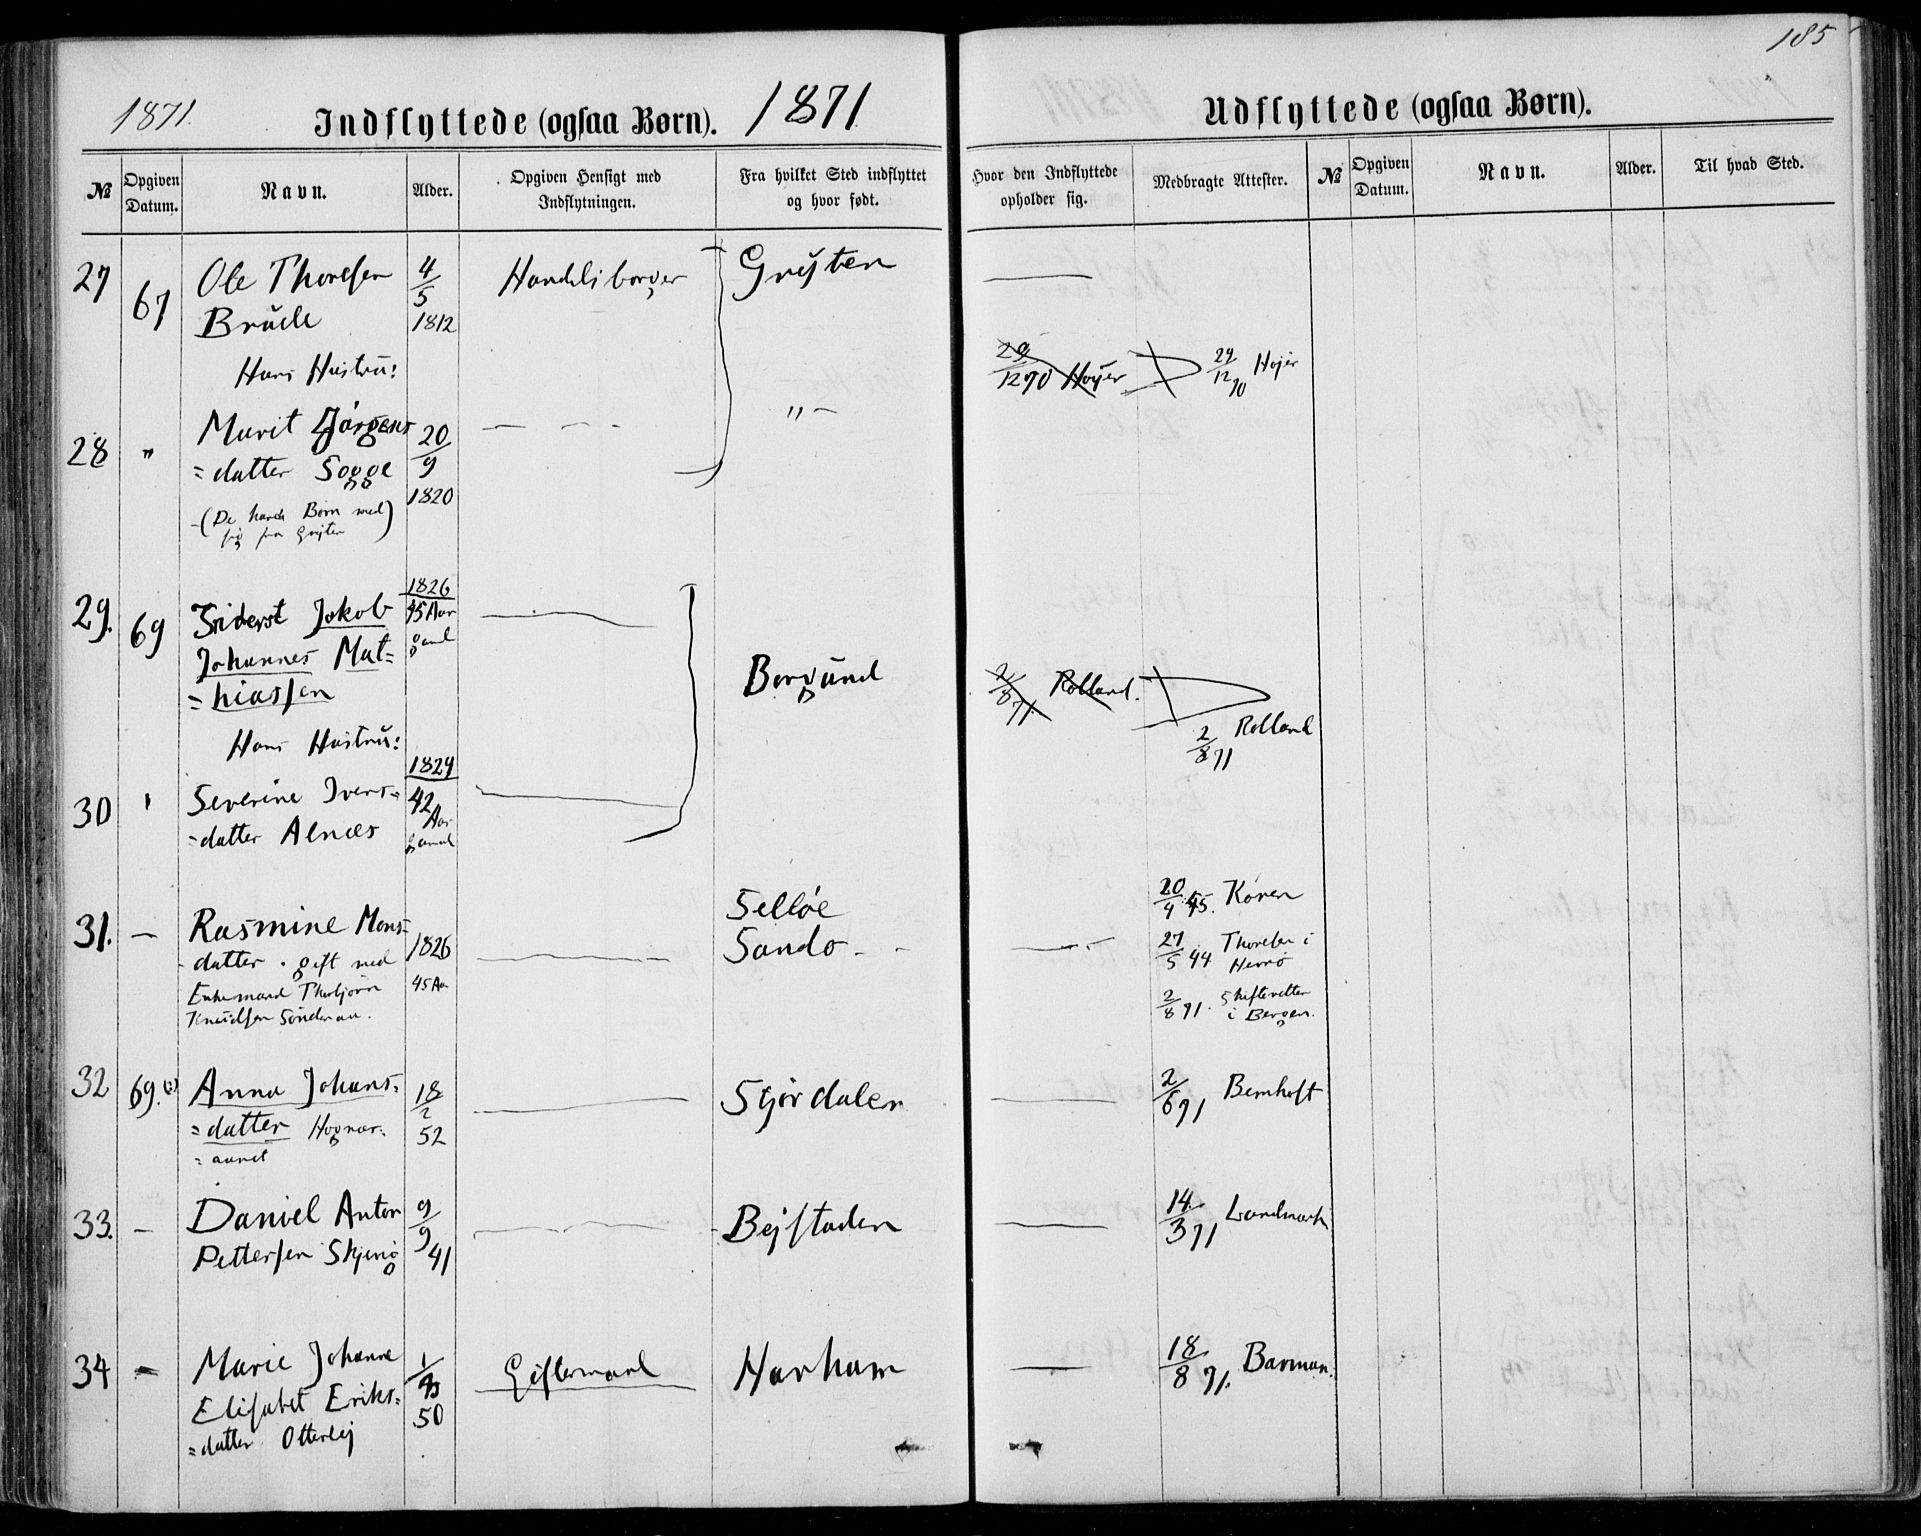 185
1871. Indflyttede (ogsaa Børn). 1871
Udflyttede (ogsaa Børn).
№ Opgiven Datum. Navn. Alder. Opgiven Hensigt med Indflytningen. Fra hvilket Sted indflyttet og hvor født. Hvor den Indflyttede opholder sig. Medbragte Attester. № Opgiven Datum. Navn. Alder. Til hvad Sted.
27 67 Ole Thoresen 4/5 Handelsborger Gryten —
Brude 1812
Hans Hustru: 29/12 70 Høyer 29/12 70 Hojer
28 " Marit Jørgens 20/9 — " —
= datter Sogge
1820
(De havde Børn med
sig fra Gryten)
1826
29. 69 Jakob 45 Aar —
Johannes Mat= gaml
= hiassen Borgund 2/8 71. Rolland.
Hans Hustru: 2/8 71 Rolland
1829
30 " Severine Ivers= 42 —
= datter Alnæs Aar
gaml
31. — Rasmine Mons= Selløe 20/4 45. Koren
datter. gift med 1826 — Sando — 27/5 44 Thoresen i
Herrø
Enkemand Thorbjørn 45 Aar
Knudsen Sønderaa. 2/8 71. Skifteretten
i Bergen.
32 69. Anna Johans= 18/2 — Stjørdalen — 2/6 71 Bernhoft
= datter 52
33. — Daniel Anton 9/9 — Bejstaden — 14/3 71 Landmark
Pettersen 41
34 — Marie Johanne 1/ Giftermaal Harham — 18/8 71. Barman.
Elisabet Eriks=
50
= datter Otterlej